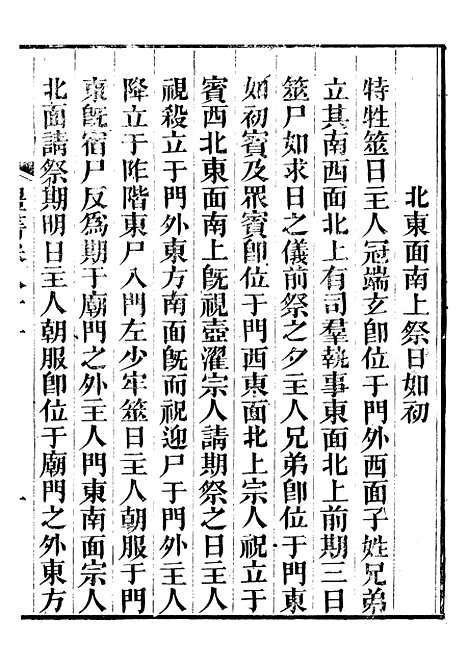 北東面南上祭日如初
特牲筮日主人冠端玄卽位于門外西面子姓兄弟
立其南西面北上有司羣執事東面北上前期三日
筮尸如求日之儀前祭之夕主人兄弟卽位于門東
如初賓及眾賓卽位于門西東面北上宗人祝立于
賓西北東面南上旣視壺濯宗人請期祭之日主人
視殺立于門外東方南面旣而祝迎尸于門外主人
降立于阼階東尸入門左少牢筮日主人朝服于門
東旣宿尸反為期于廟門之外主人門東南面宗人
北面請祭期明日主人朝服卽位于廟門之外東方